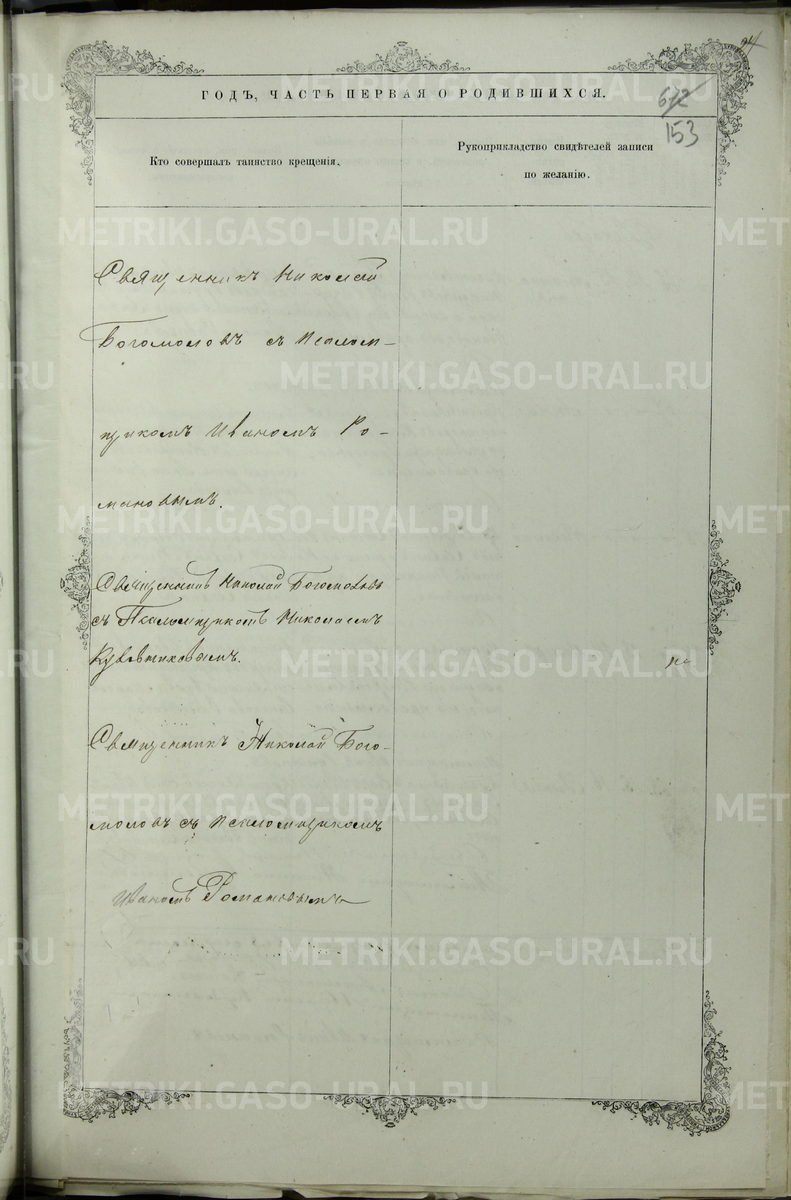 ГОДЪ, ЧАСТЬ ПЕРВАЯ О РОДИВШИХСЯ.
153
Кто совершалъ таинство крещенія.
Рукоприкладство свидѣтелей записи
по желанію.
Священникъ Николай
Богомоловъ съ Псалом-
щикомъ Иваномъ Ро-
мановымъ.
Священникъ Николай Богомоловъ
съ Псаломщикомъ Николаемъ
Священникъ Николай Бого-
моловъ съ Псаломщикомъ
Иваномъ Романовымъ
METRIKI.GASO-URAL.RU